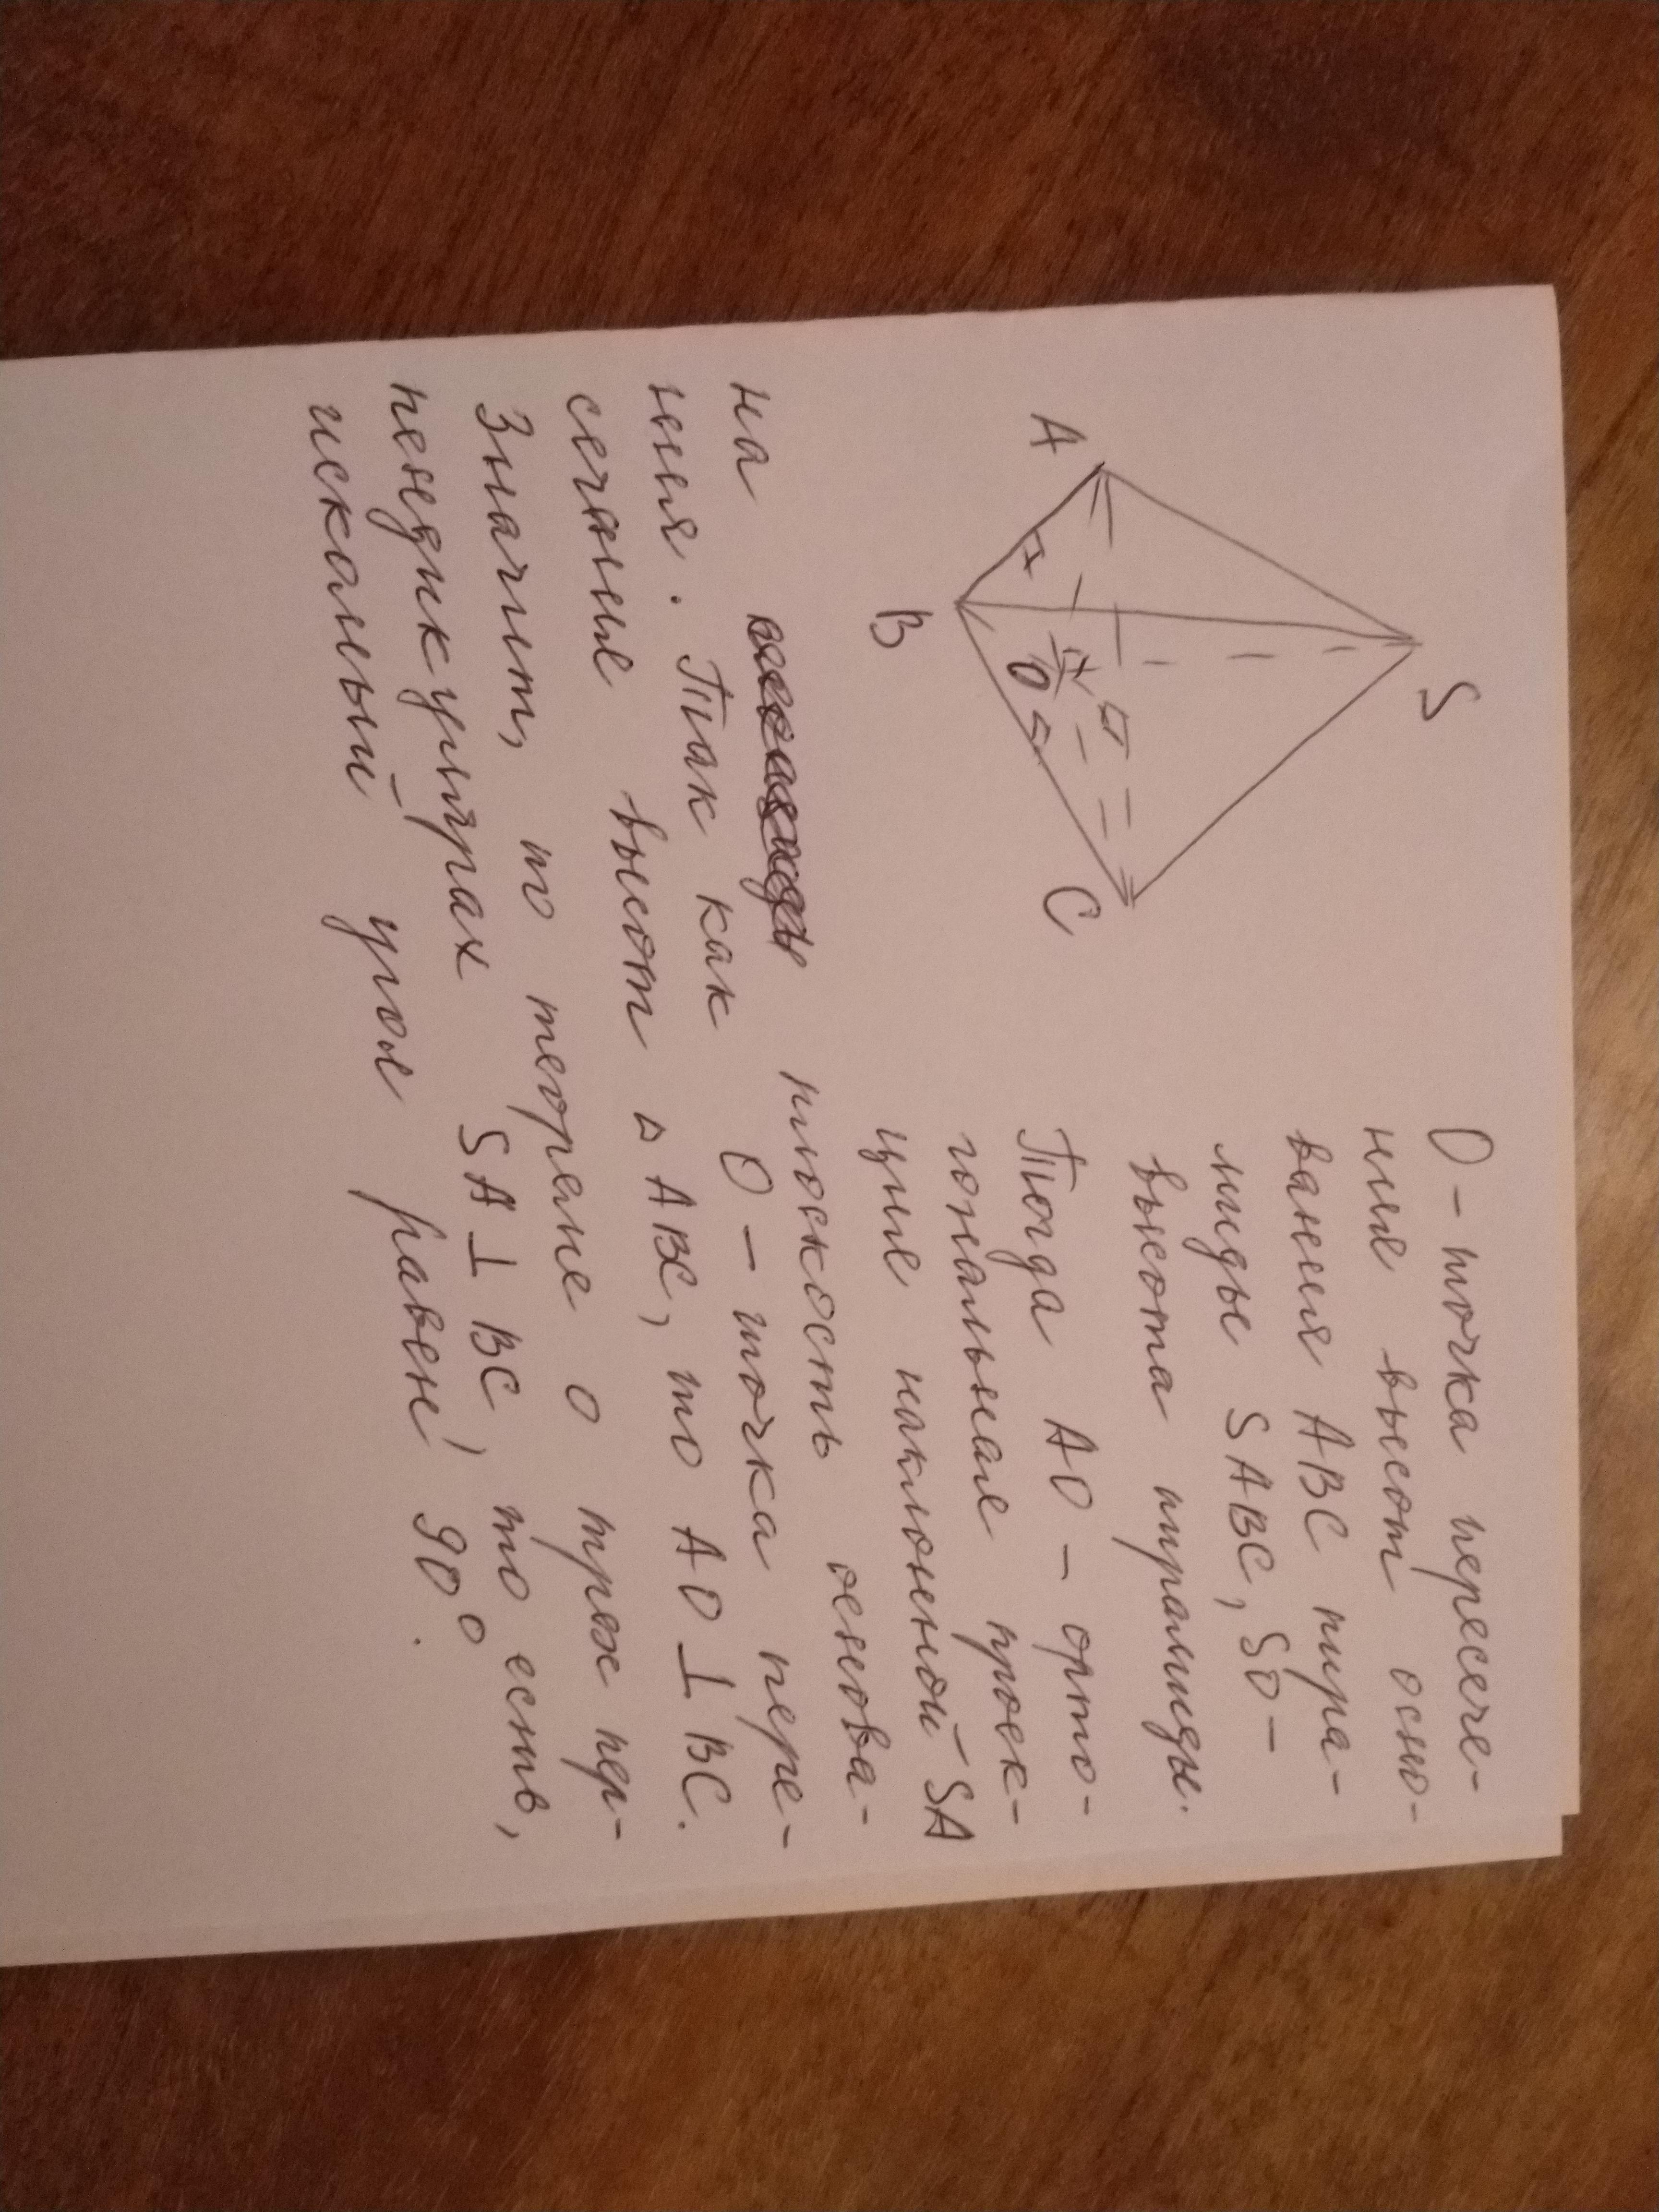 S
A
B
C
O
О - точка пересече-
ние высот осно-
вания ABC пира-
миды SABC, SO -
высота пирамиды.
Тогда AO - орто-
гональная проек-
ция наклонной SA
на плоскость основа-
ния. Так как O - точка пере-
сечение высот △ABC, то AO ⊥ BC.
Значит, по теореме о трех пер-
пендикулярах SA ⊥ BC, то есть,
искомый угол равен 90°.